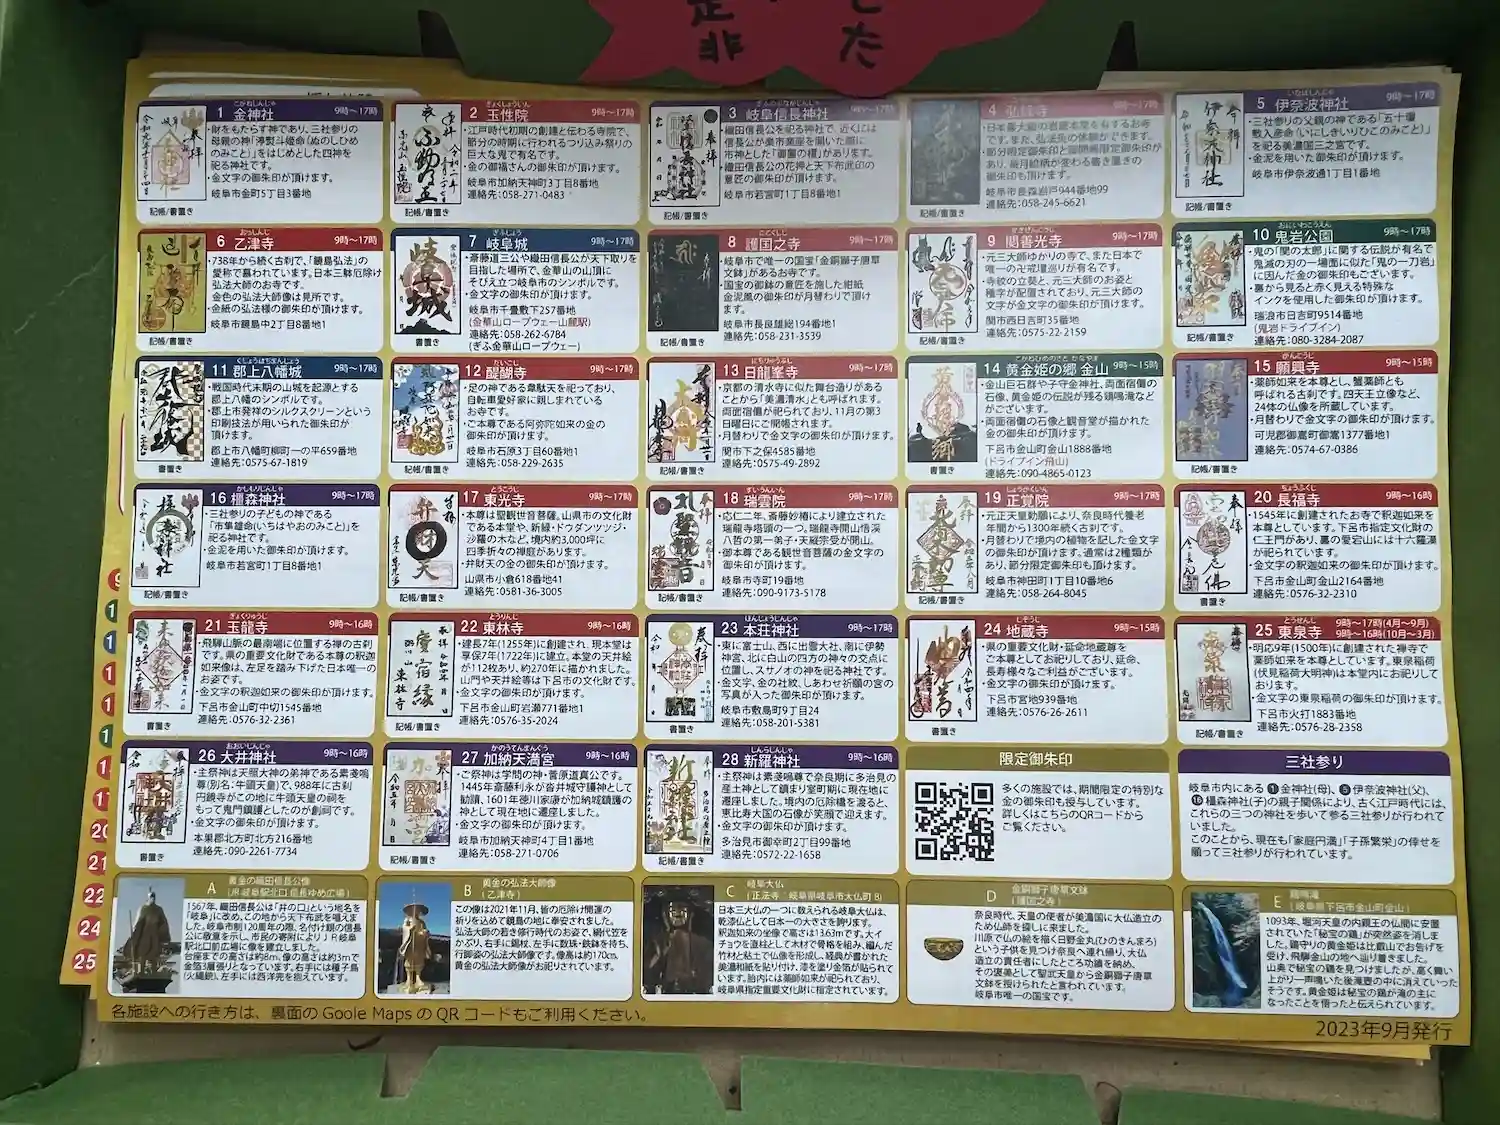 した
是非
1 金神社 9時〜17時
・財をもたらす神であり、三社参りの
母親の神「渟熨斗姫命(ぬのしひめ
のみこと)」をはじめとした四神を
祀る神社です。
・金文字の御朱印が頂けます。
岐阜市金町5丁目3番地
記帳/書置き
2 玉性院 9時〜17時
・江戸時代初期の創建と伝わる寺院で、
節分の時期に行われるつり込み祭りの
巨大な鬼で有名です。
・金の御福さんの御朱印が頂けます。
岐阜市加納天神町3丁目8番地
連絡先:058-271-0483
記帳/書置き
3 岐阜信長神社 9時〜17時
・織田信長公を祀る神社で、近くには
信長公が楽市楽座を開いた際に
市神とした「御薗の榎」があります。
・織田信長公の花押と天下布武印の
意匠の御朱印が頂けます。
岐阜市若宮町1丁目8番地1
記帳/書置き
4 弘峰寺 9時〜17時
岐阜市長森岩戸944番地99
連絡先:058-245-6621
記帳/書置き
5 伊奈波神社 9時〜17時
・三社参りの父親の神である「五十瓊
敷入彦命(いにしきいりひこのみこと)」
を祀る美濃国三之宮です。
・金泥を用いた御朱印が頂けます。
岐阜市伊奈波通1丁目1番地
記帳/書置き
6 乙津寺 9時〜17時
・738年から続く古刹で、「鏡島弘法」の
愛称で慕われています。日本三躰厄除け
弘法大師のお寺です。
・金色の弘法大師像は見所です。
・金紙の弘法様の御朱印が頂けます。
岐阜市鏡島中2丁目8番地1
記帳/書置き
7 岐阜城 9時〜17時
・斎藤道三公や織田信長公が天下取りを
目指した場所で、金華山の山頂に
そびえ立つ岐阜市のシンボルです。
・金文字の御朱印が頂けます。
岐阜市千畳敷下257番地
(金華山ロープウェー山麓駅)
連絡先:058-262-6784
(ぎふ金華山ロープウェー)
書置き
8 護国之寺 9時〜17時
・岐阜市で唯一の国宝「金銅獅子唐草
文鉢」があるお寺です。
・国宝の御鉢の意匠を施した紺紙
金泥風の御朱印が月替わりで頂け
ます。
岐阜市長良雄総194番地1
連絡先:058-231-3539
書置き
9 関善光寺 9時〜17時
・元三大師ゆかりの寺で、また日本で
唯一の卍戒壇巡りが有名です。
・寺紋の立葵と、元三大師のお姿と
種字が配置されており、元三大師の
文字が金文字の御朱印が頂けます。
関市西日吉町35番地
連絡先:0575-22-2159
記帳/書置き
10 鬼岩公園 9時〜17時
・鬼の「関の太郎」に関する伝説が有名で
鬼滅の刃の一場面に似た「鬼の一刀岩」
に因んだ金の御朱印もございます。
・裏から見ると赤く見える特殊な
インクを使用した御朱印が頂けます。
瑞浪市日吉町9514番地
(鬼岩ドライブイン)
連絡先:080-3284-2087
書置き
11 郡上八幡城 9時〜17時
・戦国時代末期の山城を起源とする
郡上八幡のシンボルです。
・郡上市発祥のシルクスクリーンという
印刷技法が用いられた御朱印が
頂けます。
郡上市八幡町柳町一の平659番地
連絡先:0575-67-1819
書置き
12 醍醐寺 9時〜17時
・足の神である韋駄天を祀っており、
自転車愛好家に親しまれている
お寺です。
・ご本尊である阿弥陀如来の金の
御朱印が頂けます。
岐阜市石原3丁目60番地1
連絡先:058-229-2635
記帳/書置き
13 日龍峯寺 9時〜17時
・京都の清水寺に似た舞台造りがある
ことから「美濃清水」とも呼ばれます。
両面宿儺が祀られており、11月の第3
日曜日にご開帳されます。
・月替わりで金文字の御朱印が頂けます。
関市下之保4585番地
連絡先:0575-49-2892
記帳/書置き
14 黄金姫の郷 金山 9時〜15時
・金山巨石群や子守金神社、両面宿儺の
石像、黄金姫の伝説が残る鶏鳴滝など
がございます。
・両面宿儺の石像と観音堂が描かれた
金の御朱印が頂けます。
下呂市金山町金山1888番地
(ドライブイン飛山)
連絡先:090-4865-0123
書置き
15 願興寺 9時〜15時
・薬師如来を本尊とし、蟹薬師とも
呼ばれる古刹です。四天王立像など、
24体の仏像を所蔵しています。
・月替わりで金文字の御朱印が頂けます。
可児郡御嵩町御嵩1377番地1
連絡先:0574-67-0386
記帳/書置き
16 橿森神社 9時〜17時
・三社参りの子どもの神である
「市隼雄命(いちはやおのみこと)」を
祀る神社です。
・金泥を用いた御朱印が頂けます。
岐阜市若宮町1丁目8番地
記帳/書置き
17 東光寺 9時〜17時
・本尊は聖観世音菩薩。山県市の文化財
である本堂や、新緑・ドウダンツツジ・
沙羅の木など、境内約3,000坪に
四季折々の禅庭があります。
・弁財天の金の御朱印が頂けます。
山県市小倉618番地41
連絡先:0581-36-3005
記帳/書置き
18 瑞雲院 9時〜17時
・応仁二年、斎藤妙椿により建立された
瑞龍寺塔頭の一つ。瑞龍寺開山悟渓
八哲の第一弟子・天縦宗受が開山。
・御本尊である観世音菩薩の金文字の
御朱印が頂けます。
岐阜市寺町19番地
連絡先:090-9173-5178
記帳/書置き
19 正覚院 9時〜17時
・元正天皇勅願により、奈良時代養老
年間から1300年続く古刹です。
・月替わりで境内の植物を記した金文字
の御朱印が頂けます。通常は2種類が
あり、節分限定御朱印もございます。
岐阜市神田町1丁目10番地6
連絡先:058-264-8045
記帳/書置き
20 長福寺 9時〜16時
・1545年に創建されたお寺で釈迦如来を
本尊としています。下呂市指定文化財の
仁王門があり、裏の愛宕山には十六羅漢
が祀られています。
・金文字の釈迦如来の御朱印が頂けます。
下呂市金山町金山2164番地
連絡先:0576-32-2310
書置き
21 玉龍寺 9時〜16時
・飛騨山脈の最南端に位置する禅の古刹
です。県の重要文化財である本尊の釈迦
如来像は、左足を踏み下げた日本唯一の
お姿です。
・金文字の釈迦如来の御朱印が頂けます。
下呂市金山町中切1545番地
連絡先:0576-32-2361
書置き
22 東林寺 9時〜16時
・建長7年(1255年)に創建され、現本堂は
享保7年(1722年)に建立。本堂の天井絵
が112枚あり、約270年に描かれました。
山門や天井絵等は下呂市の文化財です。
・金文字の御朱印が頂けます。
下呂市金山町岩瀬771番地1
連絡先:0576-35-2024
記帳/書置き
23 本荘神社 9時〜17時
・東に富士山、西に出雲大社、南に伊勢
神宮、北に白山の四方の神々の交点に
位置し、スサノオの神を祀る神社です。
・金文字、金の社紋、しあわせ祈願の宮の
写真が入った御朱印が頂けます。
岐阜市敷島町9丁目24
連絡先:058-201-5381
書置き
24 地蔵寺 9時〜16時
・県の重要文化財・延命地蔵尊を
ご本尊としてお祀りしており、延命、
長寿様々なご利益がございます。
・金文字の御朱印が頂けます。
下呂市宮地939番地
連絡先:0576-26-2611
記帳/書置き
25 東泉寺 9時〜17時(4月〜9月)
9時〜16時(10月〜3月)
・明応9年(1500年)に創建された禅寺で
薬師如来を本尊としています。東泉稲荷
(伏見稲荷大明神)は本堂内にお祀りして
おります。
・金文字の東泉稲荷の御朱印が頂けます。
下呂市火打1883番地
連絡先:0576-28-2358
記帳/書置き
26 大井神社 9時〜16時
・主祭神は天照大神の弟神である素盞嗚
尊(別名:牛頭天皇)で、988年に古刹
円鏡寺がこの地に牛頭天皇の祠を
もって鬼門鎮護としたのが創祠です。
・金文字の御朱印が頂けます。
本巣郡北方町北方216番地
連絡先:090-2261-7734
書置き
27 加納天満宮 9時〜16時
・ご祭神は学問の神・菅原道真公です。
1445年斎藤利永が沓井城守護神として
勧請、1601年徳川家康が加納城鎮護の
神として現在地に遷座しました。
・金文字の御朱印が頂けます。
岐阜市加納天神町4丁目1番地
連絡先:058-271-0706
記帳/書置き
28 新羅神社 9時〜16時
・主祭神は素盞嗚尊で奈良期に多治見の
産土神として鎮まり室町期に現在地に
遷座しました。境内の厄除橋を渡ると、
恵比寿大国の石像が笑顔で迎えます。
・金文字の御朱印が頂けます。
多治見市御幸町2丁目99番地
連絡先:0572-22-1658
記帳/書置き
限定御朱印
多くの施設では、期間限定の特別な
金の御朱印も授与しています。
詳しくはこちらのQRコードから
ご覧ください。
三社参り
岐阜市内にある❶金神社(母)、❺伊奈波神社(父)、
⓰橿森神社(子)の親子関係により、古く江戸時代には、
これらの三つの神社を歩いて参る三社参りが行われて
いました。
このことから、現在も「家庭円満」「子孫繁栄」の倖せを
願って三社参りが行われています。
A 黄金の織田信長公像
(JR岐阜駅北口 信長ゆめ広場)
1567年、織田信長公は「井の口」という地名を
「岐阜」に改め、この地から天下布武を唱えま
した。岐阜市制120周年の際、名付け親の信長
公に敬意を示し、市民の寄附によりJR岐阜
駅北口前広場に像を建立しました。
台座までの高さは約8m、像の高さは約3mで
金箔3層張りとなっています。右手には種子島
(火縄銃)、左手には西洋兜を抱えています。
B 黄金の弘法大師像
(乙津寺)
この像は2021年11月、皆の厄除け開運の
祈りを込めて鏡島の地に奉安されました。
弘法大師の若き修行時代のお姿で、網代笠を
かぶり、右手に錫杖、左手に数珠・鉄鉢を持ち、
行脚姿の弘法大師像です。像高は約170cm。
黄金の弘法大師像がお祀りされています。
C 岐阜大仏
(正法寺:岐阜県岐阜市大仏町8)
日本三大仏の一つに数えられる岐阜大仏は、
乾漆仏として日本一の大きさを誇ります。
釈迦如来の坐像で高さは13.63mです。大イ
チョウを直柱として木材で骨格を組み、編んだ
竹材と粘土で仏像を形成し、経典が書かれた
美濃和紙を貼り付け、漆を塗り金箔が貼られて
います。胎内には薬師如来が祀られており、
岐阜県指定重要文化財に指定されています。
D 金銅獅子唐草文鉢
(護国之寺)
奈良時代、天皇の使者が美濃国に大仏造立の
ため仏師を探しに来ました。
川原で仏の絵を描く日野金丸(ひのきんまろ)
という子供を見つけ奈良へ連れ帰り、大仏
造立の責任者にしたところ功績を納め、
その褒美として聖武天皇から金銅獅子唐草
文鉢を授けられたと言われています。
岐阜市唯一の国宝です。
E 鶏鳴滝
(岐阜県下呂市金山町金山)
1093年、堀河天皇の内親王の仏間に安置
されていた「秘宝の鶏」が突然姿を消しま
した。鶏守りの黄金姫は比叡山でお告げを
受け、飛騨金山の地へ辿り着きました。
山奥で秘宝の鶏を見つけましたが、高く舞い
上がり一声鳴いた後滝壺の中に消えていった
そうです。黄金姫は秘宝の鶏が滝の主に
なったことを悟ったと伝えられています。
各施設への行き方は、裏面の Goole Maps の QR コードもご利用ください。
2023年9月発行
20
21
22
24
25